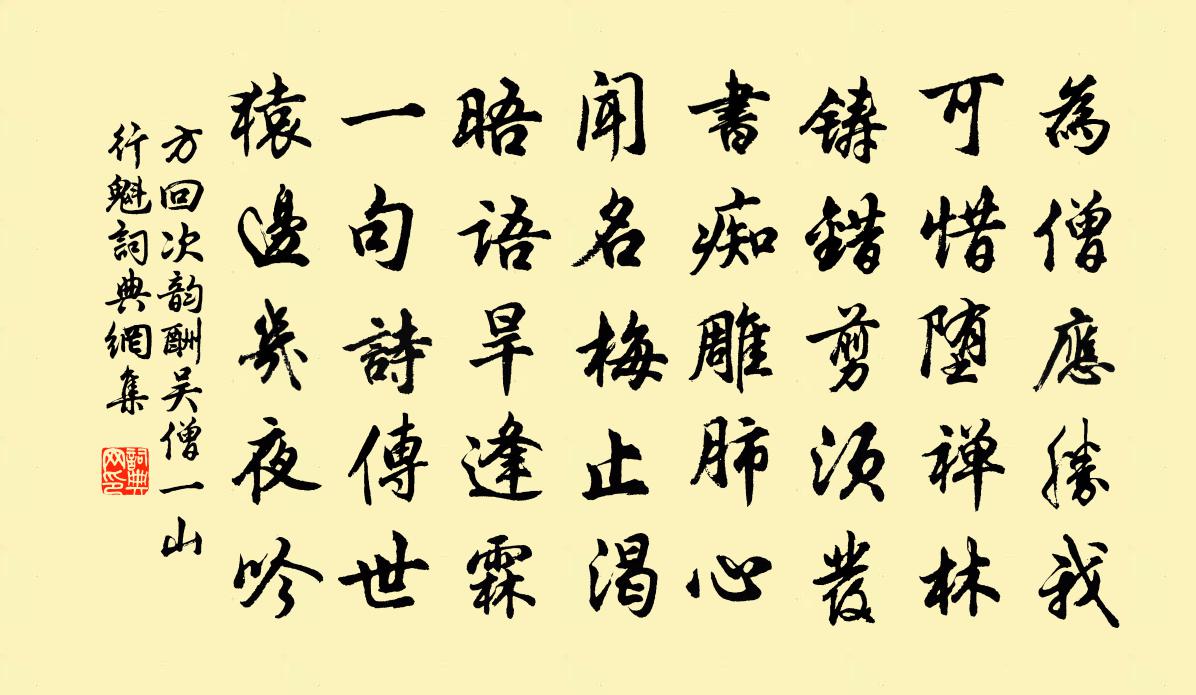 為僧應勝我
可惜堕禅林
鑄錯剪須髮
書痴雕肺心
聞名梅止渴
晤語旱逢霖
一句詩傳世
猿邊幾夜吟
方回次韵酬吴僧一山
行魁詞典網集
詞典網印